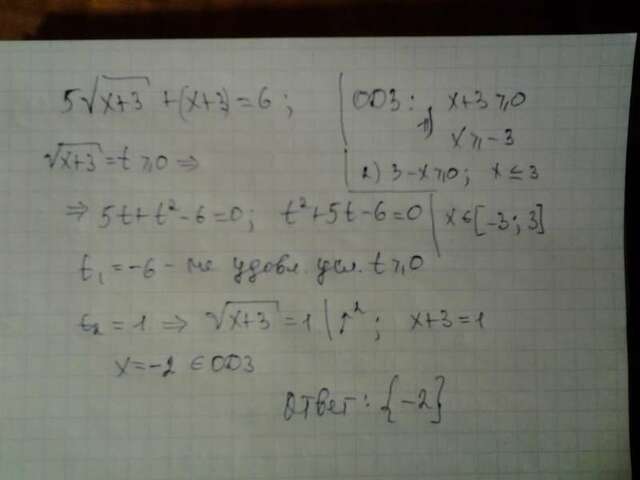 5√(x+3) + (x+3) = 6;
ОДЗ: 1) x+3 ≥ 0
x ≥ -3
√(x+3) = t ≥ 0 ⇒
2) 3-x ≥ 0; x ≤ 3
⇒ 5t + t² - 6 = 0; t² + 5t - 6 = 0
x ∈ [-3; 3]
t₁ = -6 - не удовл. усл. t ≥ 0
t₂ = 1 ⇒ √(x+3) = 1 |↑²; x+3 = 1
x = -2 ∈ ОДЗ
Ответ: {-2}